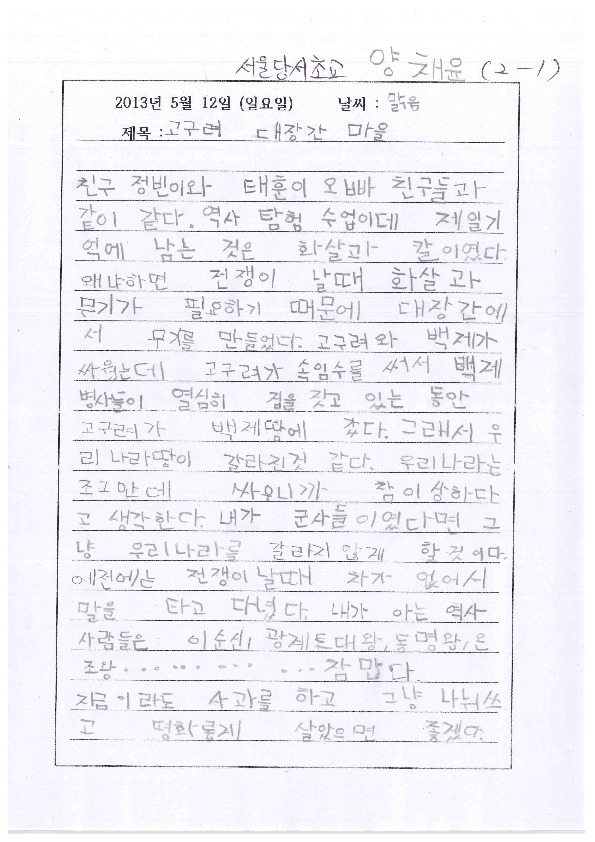 서울당서초교 양채윤 (2-1)
2013년 5월 12일 (일요일) 날씨 : 맑음
제목 : 고구려 대장간 마을
친구 정빈이와 태훈이 오빠 친구들과
같이 갔다. 역사 탐험 수업이데 제일기
억에 남는 것은 화살과 칼이였다.
왜냐하면 전쟁이 날때 화살과
무기가 필요하기 때문에 대장간에
서 무기를 만들었다. 고구려와 백제가
싸웠는데 고구려가 속임수를 써서 백제
병사들이 열심히 집을 짓고 있는 동안
고구려가 백제땅에 갔다. 그래서 우
리 나라땅이 갈라진것 같다. 우리나라는
조그만데 싸우니까 참이상하다
고 생각한다. 내가 군사들이였다면 그
냥 우리나라를 갈라지않게 할것이다.
예전에는 전쟁이날때 차가 없어서
말을 타고 다녔다. 내가 아는 역사
사람들은 이순신, 광게트대왕, 동명왕, 온
조왕 ‥‥‥ ‥‥ ‥‥ 참 많다
지금이라도 사과를 하고 그냥 나눠쓰
고 평화롭게 살았으면 좋겠다.